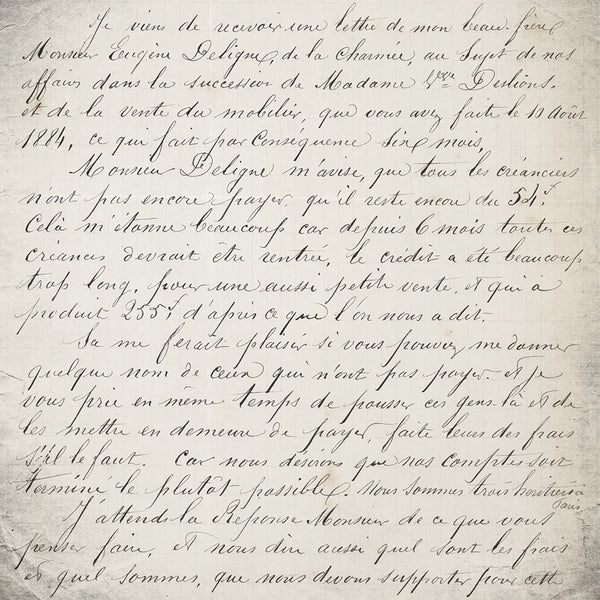 Je viens de recevoir une lettre de mon beau frère
Monsieur Eugène Deligne, de la Charmée, au sujet de nos
affaires dans la succession de Madame Vve Deslions.
et de la vente du mobilier, que vous avez faite le 19 Août
1884, ce qui fait par conséquence six mois,
Monsieur Deligne m'avise, que tous les créanciers
n'ont pas encore payer. qu'il reste encore du 54f.
Celà m'étonne beaucoup car depuis 6 mois toutes ces
créances devrait être rentrée, le crédit a été beaucoup
trop long, pour une aussi petite vente. et qui a
produit 255f d'après ce que l'on nous a dit.
Sa me ferait plaisir si vous pouviez me donner
quelque nom de ceux qui n'ont pas payer. et je
vous prie en même temps de pousser ces gens là et de
les mettre en demeure de payer, faite leurs des frais
s'il le faut. Car nous désirons que nos comptes soit
terminé le plutôt possible. nous sommes trois héritiers à
Paris
J'attends la Réponse Monsieur de ce que vous
penser faire, et nous dire aussi quel sont les frais
et quel sommes, que nous devons supporter pour cette